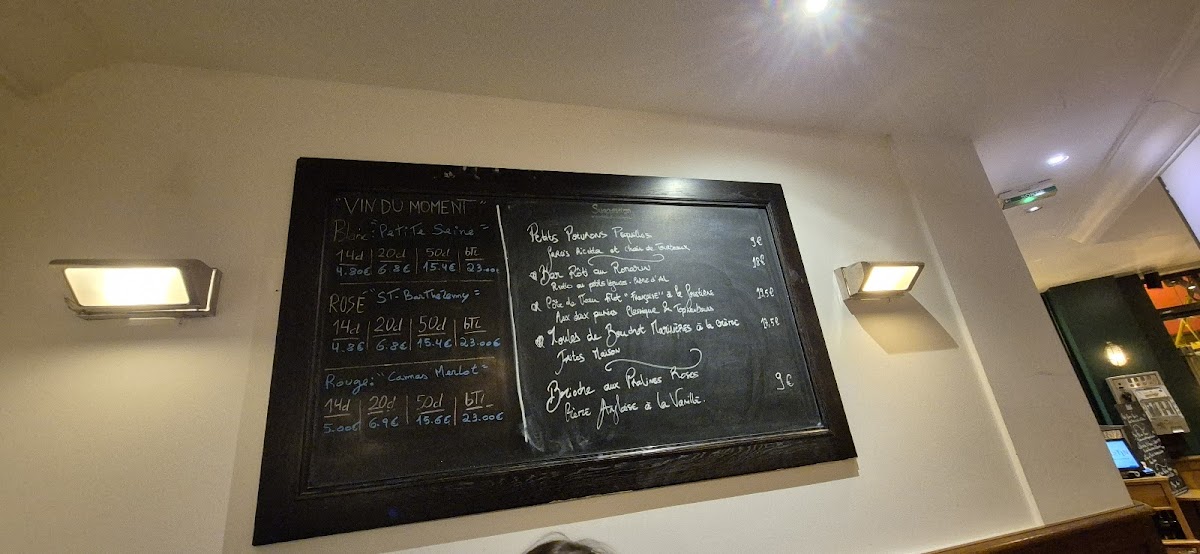 "VIN DU MOMENT"
Blanc: "Petite Seine"
14cl 20cl 50cl bTL
4.80€ 6.8€ 15.4€ 23.00€
ROSÉ "ST-BarThélemy"
14cl 20cl 50cl bTL
4.8€ 6.8€ 15.4€ 23.00€
Rouge: "Camas Merlot"
14cl 20cl 50cl bTL
5.00€ 6.9€ 15.6€ 23.00€
Suggestion
Petits Poivrons Piquillos 9€
Farcis Ricotta et
Bar Rôti au Romarin 18€
Risotto au petits légumes
Côte de Veau "Française" à la
Aux deux
Moules de Bouchot Marinières à la crème
Frites Maison
Brioche aux Pralines Roses 9€
Crème Anglaise à la Vanille.